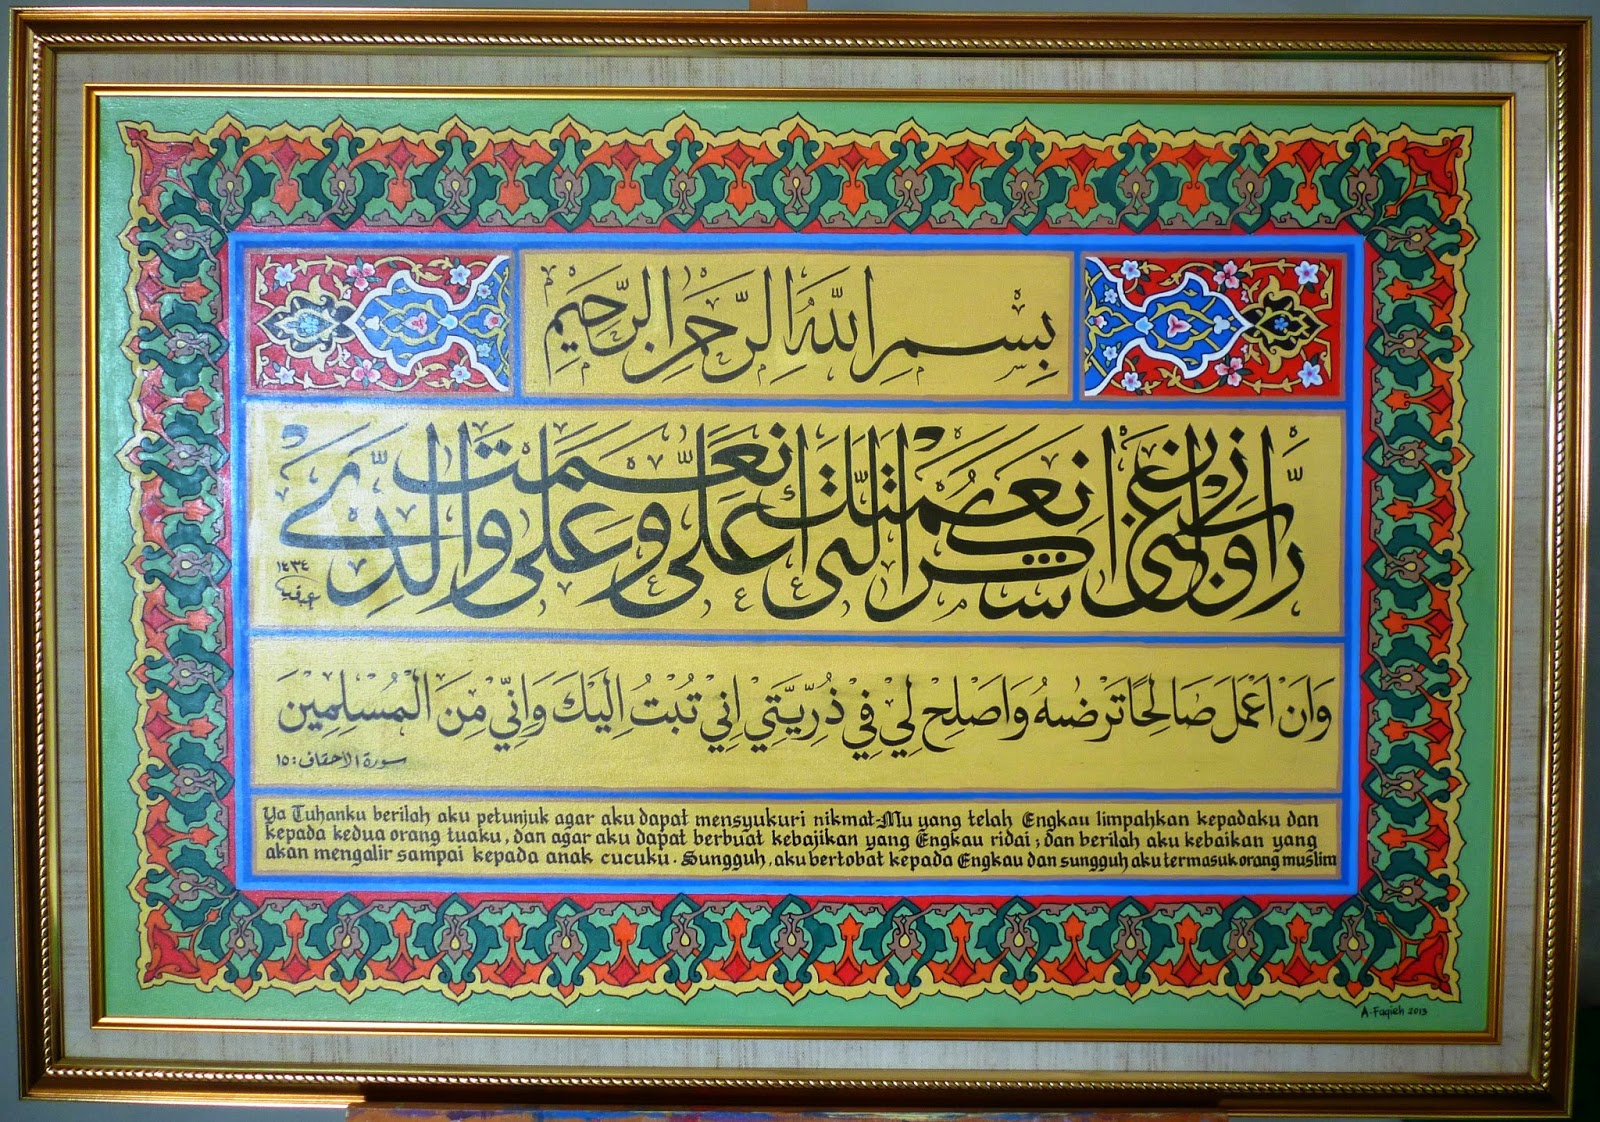 بِسْمِ اللّٰهِ الرَّحْمٰنِ الرَّحِيْمِ
رَبِّ أَوْزِعْنِي أَنْ أَشْكُرَ نِعْمَتَكَ الَّتِي أَنْعَمْتَ عَلَيَّ وَعَلَى وَالِدَيَّ
١٤٣٤
وَاَنْ اَعْمَلَ صَالِحًا تَرْضٰىهُ وَاَصْلِحْ لِيْ فِيْ ذُرِّيَّتِيْ اِنِّيْ تُبْتُ اِلَيْكَ وَاِنِّيْ مِنَ الْمُسْلِمِيْنَ
سورة الاحقاف : ١٥
Ya Tuhanku berilah aku petunjuk agar aku dapat mensyukuri nikmat-Mu yang telah Engkau limpahkan kepadaku dan
kepada kedua orang tuaku, dan agar aku dapat berbuat kebajikan yang Engkau ridai; dan berilah aku kebaikan yang
akan mengalir sampai kepada anak cucuku. Sungguh, aku bertobat kepada Engkau dan sungguh aku termasuk orang muslim
A-Faqieh 2013